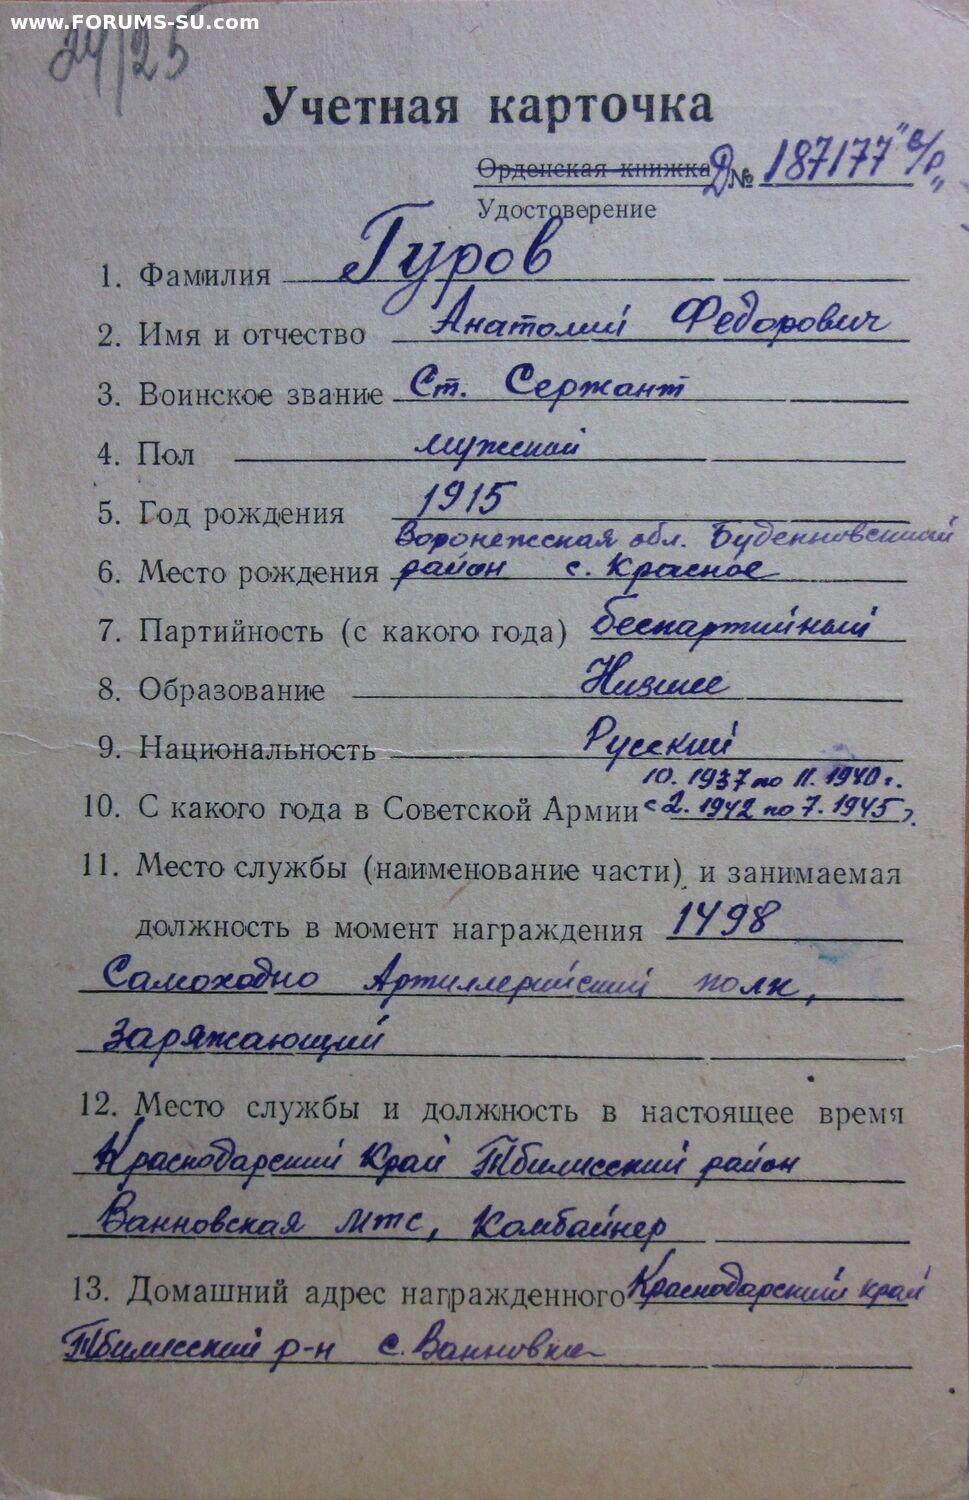 www.FORUMS-SU.com
24/25
Учетная карточка
Орденская книжка Д № 187177 "с/р"
Удостоверение
1. Фамилия Гуров
2. Имя и отчество Анатолий Федорович
3. Воинское звание Ст. Сержант
4. Пол мужской
5. Год рождения 1915
Воронежская обл. Буденновский
6. Место рождения район с. Красное
7. Партийность (с какого года) беспартийный
8. Образование Низшее
9. Национальность Русский
10. 1937 по 11. 1940 г.
10. С какого года в Советской Армии с 2. 1942 по 7. 1945 г.
11. Место службы (наименование части) и занимаемая
должность в момент награждения 1498
Самоходно Артиллерийский полк,
Заряжающий
12. Место службы и должность в настоящее время
Краснодарский Край Тбилисский район
Ванновская мтс, Комбайнер
13. Домашний адрес награжденного Краснодарский край
Тбилисский р-н с. Ванновка